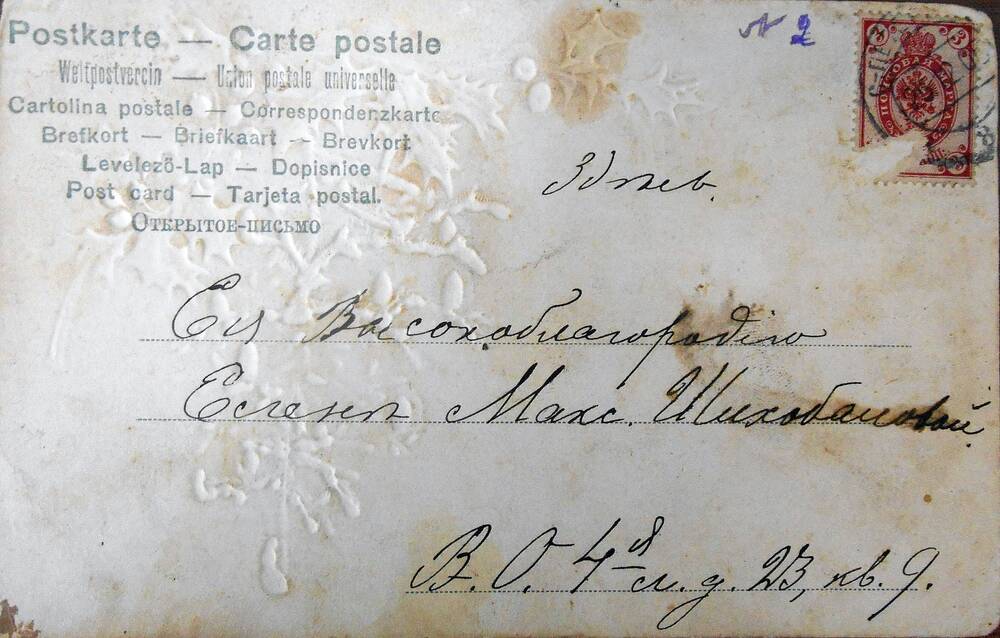 Postkarte — Carte postale
Weltpostverein — Union postale universelle
Cartolina postale — Correspondenzkarte
Brefkort — Briefkaart — Brevkort
Levelező-Lap — Dopisnice
Post card — Tarjeta postal.
Открытое-письмо
№ 2
3 3
ПОЧТОВАЯ МАРКА
Здѣсь.
Ея Высокоблагородію
Еленѣ Макс. Шихобаловой
В. О. 4я л. д. 23, кв. 9.